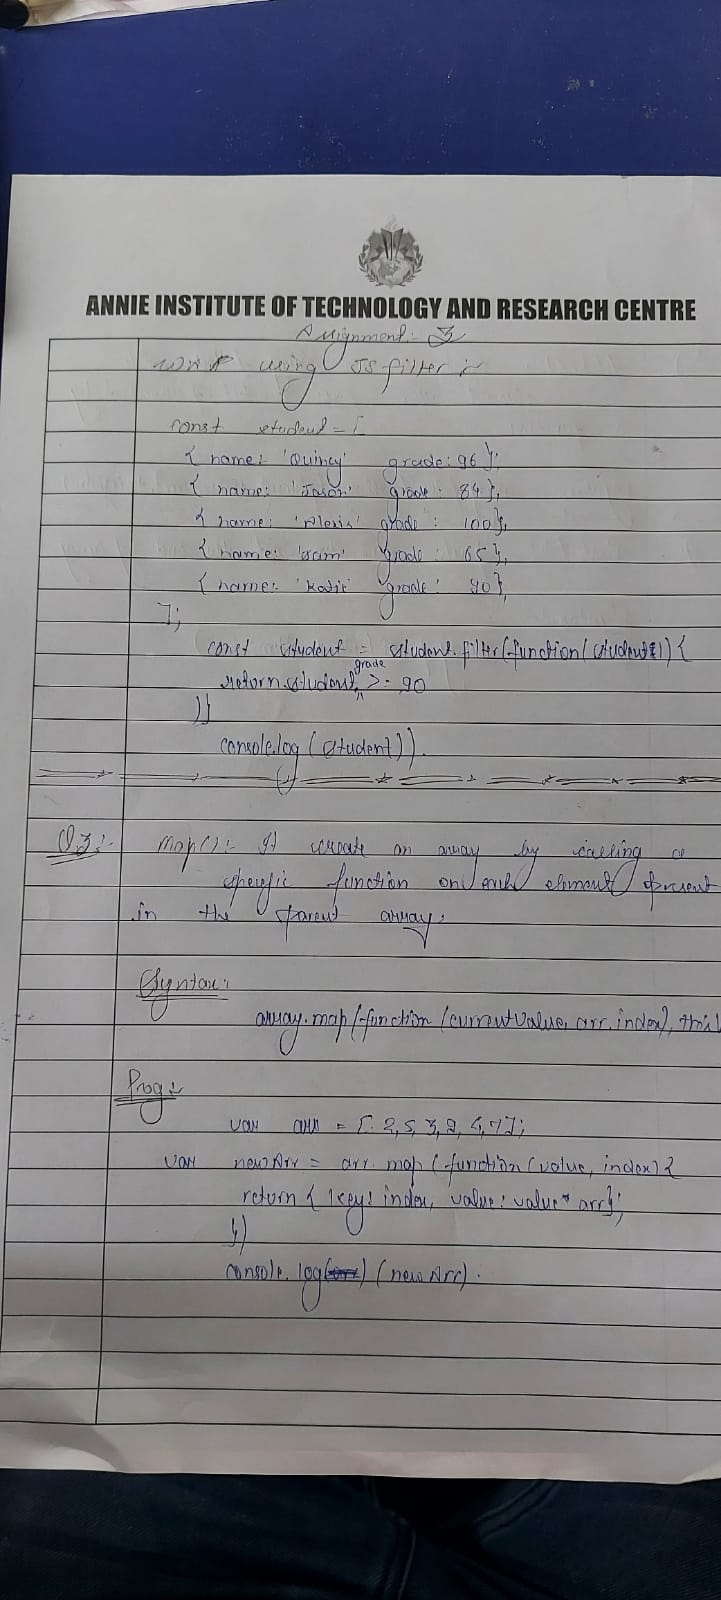 ANNIE INSTITUTE OF TECHNOLOGY AND RESEARCH CENTRE
Assignment: 3
WAP using JS filter :-
const student = [
{ name: 'Quincy' grade: 96 };
{ name: 'Jason' grade: 84 },
{ name: 'Alexis' grade: 100 },
{ name: 'Sam' grade: 65 },
{ name: 'Katie' grade: 90 },
];
const student = student.filter(function(student1) {
return student.grade >= 90
})
console.log (student)).
Q3:- Map():- It create an array by calling a
specific function on each element present
in the parent array.
Syntax:
array.map(function (currentValue, arr. index),
Prog:-
var arr = [. 2, 5, 3, 2, 4, 7];
var newArr = arr. map (function (value, index) {
return { key: index, value: value* arr};
})
console. log (newArr).